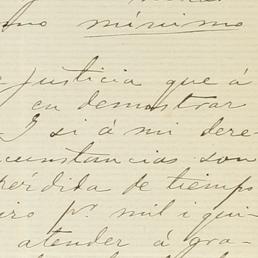 mo mínimo
justicia que á
en demostrar
Y si á mi dere-
cunstancias son
pérdida de tiempo
iro pr. mil i qui-
atender á gra-